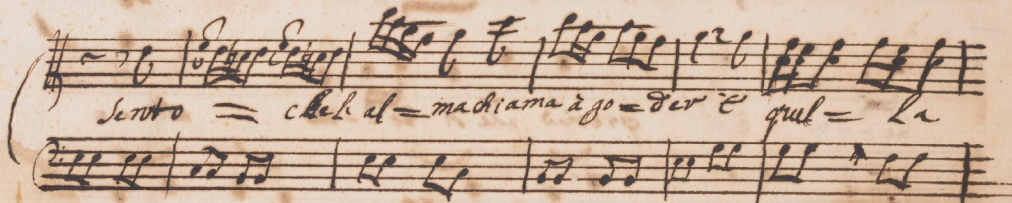 Sento = che l' al = ma chiama à go = der è quel = la